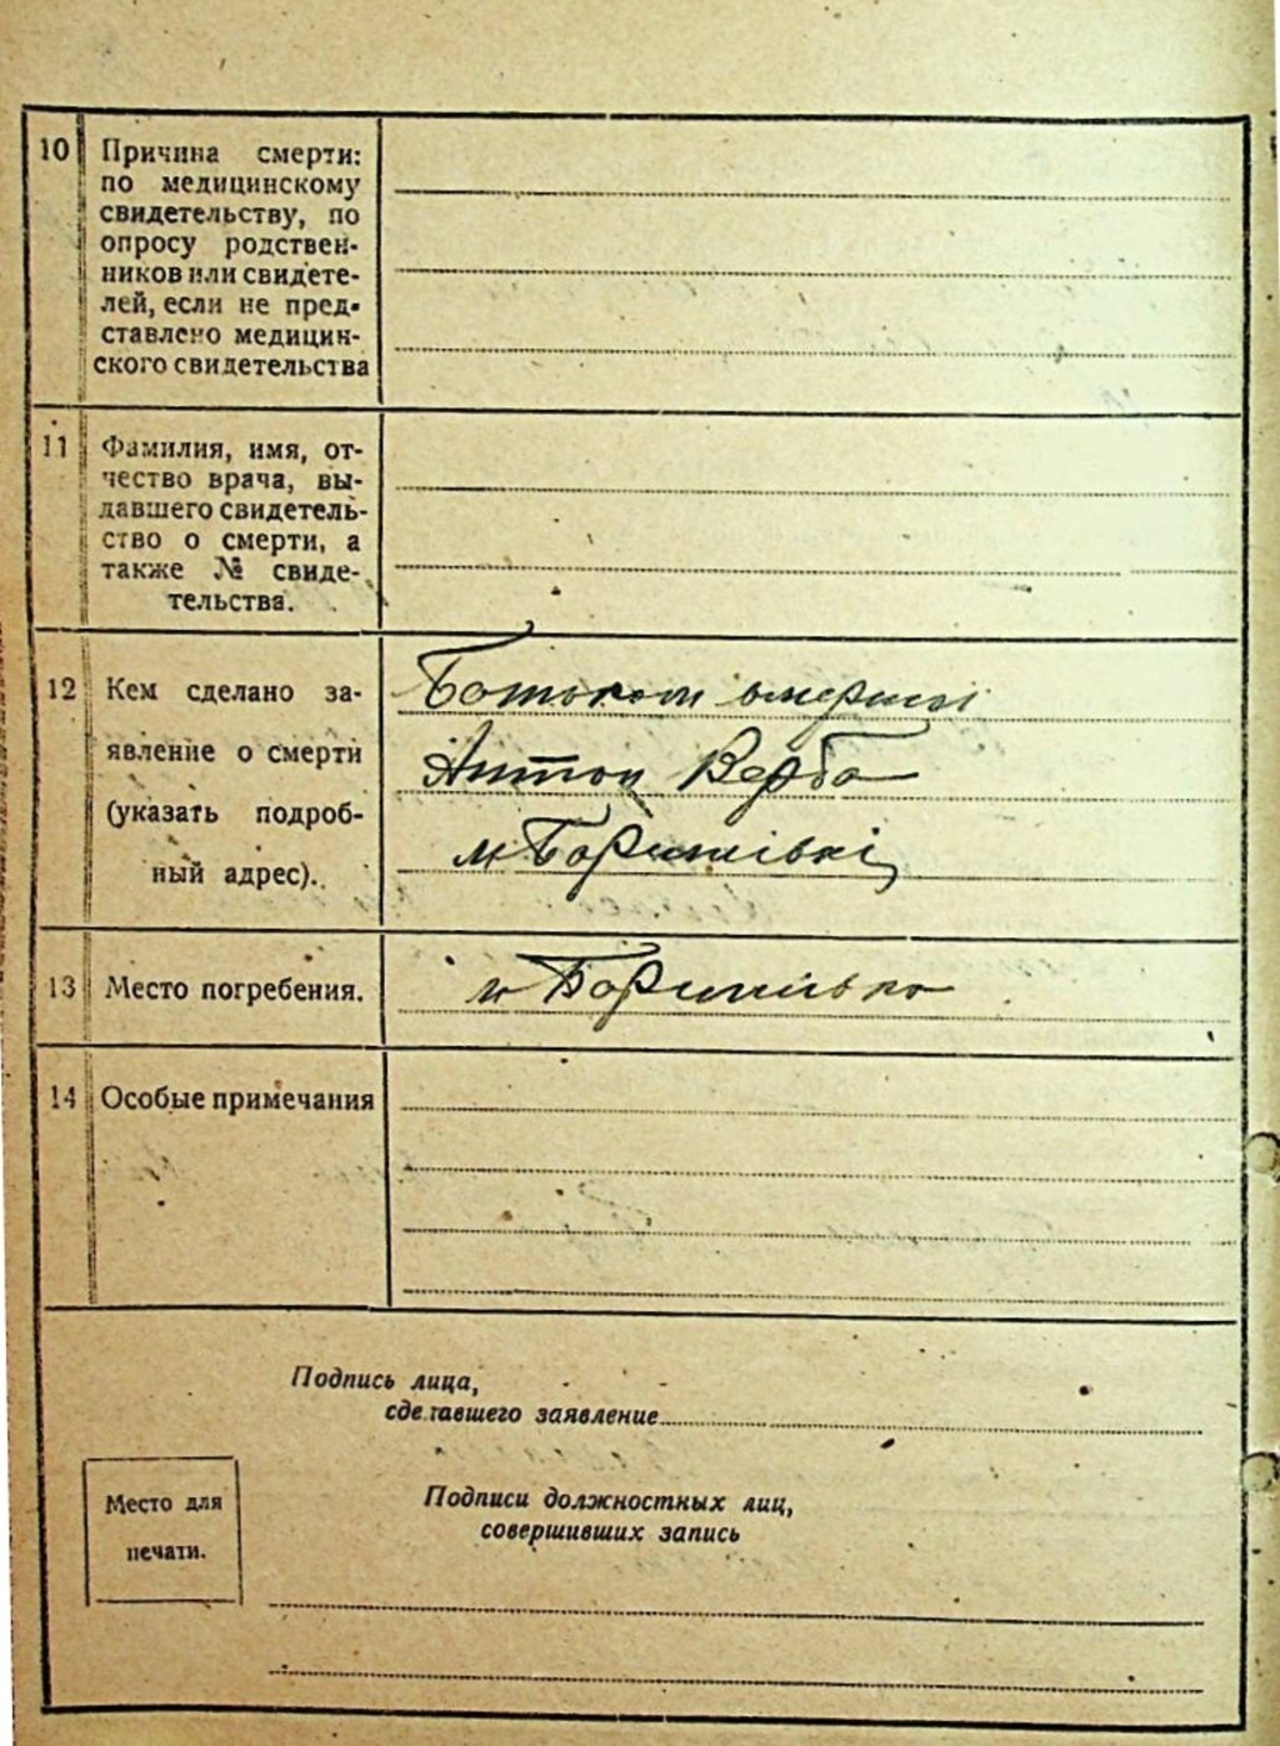 10 Причина смерти:
по медицинскому
свидетельству, по
опросу родствен-
ников или свидете-
лей, если не пред-
ставлено медицин-
ского свидетельства
11 Фамилия, имя, от-
чество врача, вы-
давшего свидетель-
ство о смерти, а
также № свиде-
тельства.
12 Кем сделано за-
явление о смерти
(указать подроб-
ный адрес).
Батьком
Антон Верба
м
13 Место погребения.
м
14 Особые примечания
Подпись лица,
сделавшего заявление
Место для
печати.
Подписи должностных лиц,
совершивших запись